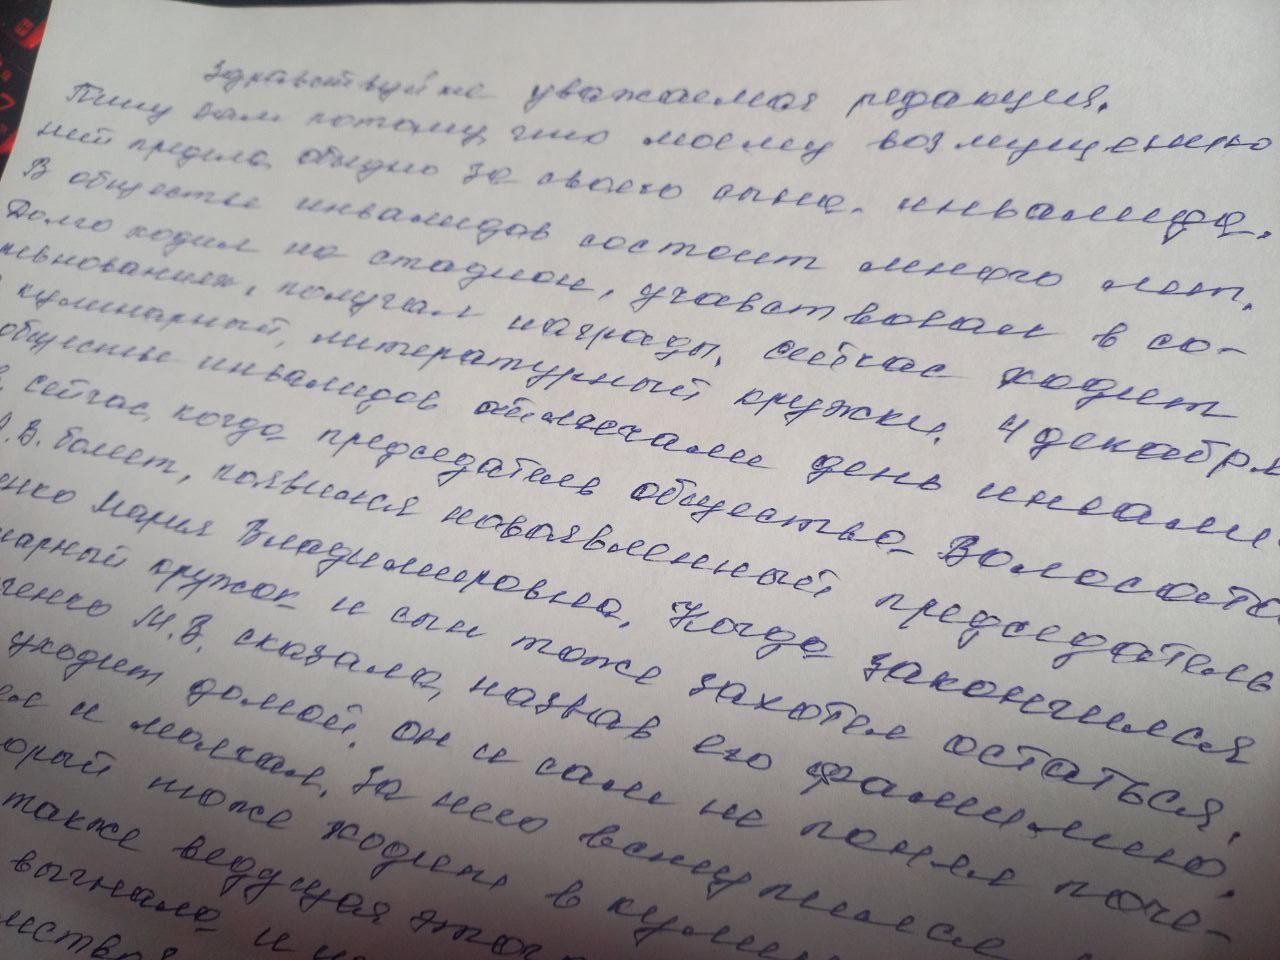 Здравствуйте уважаемая редакция.
Пишу вам потому, что моему возмущению
нет предела, обидно за своего сына. инвалида.
В обществе инвалидов состоит много лет.
Долго ходил на стадион, учавствовал в со-
ревнованиях, получал награды, сейчас ходит
кулинарный, литературный кружки. 4 декабря
обществе инвалидов отмечали день инвали-
сейчас, когда председатель общества Волосато
В. болеет, появился новоявленный председатель
енко Мария Владимировна, Когда закончился
нарный кружок и сын тоже захотел остаться,
генко М.В. сказала, назвав его фамилию,
уходит домой, он и сам не понял поче-
и молчал, за него вступился
орый тоже ходит, в кулин
также ведущая этого
выгнала и